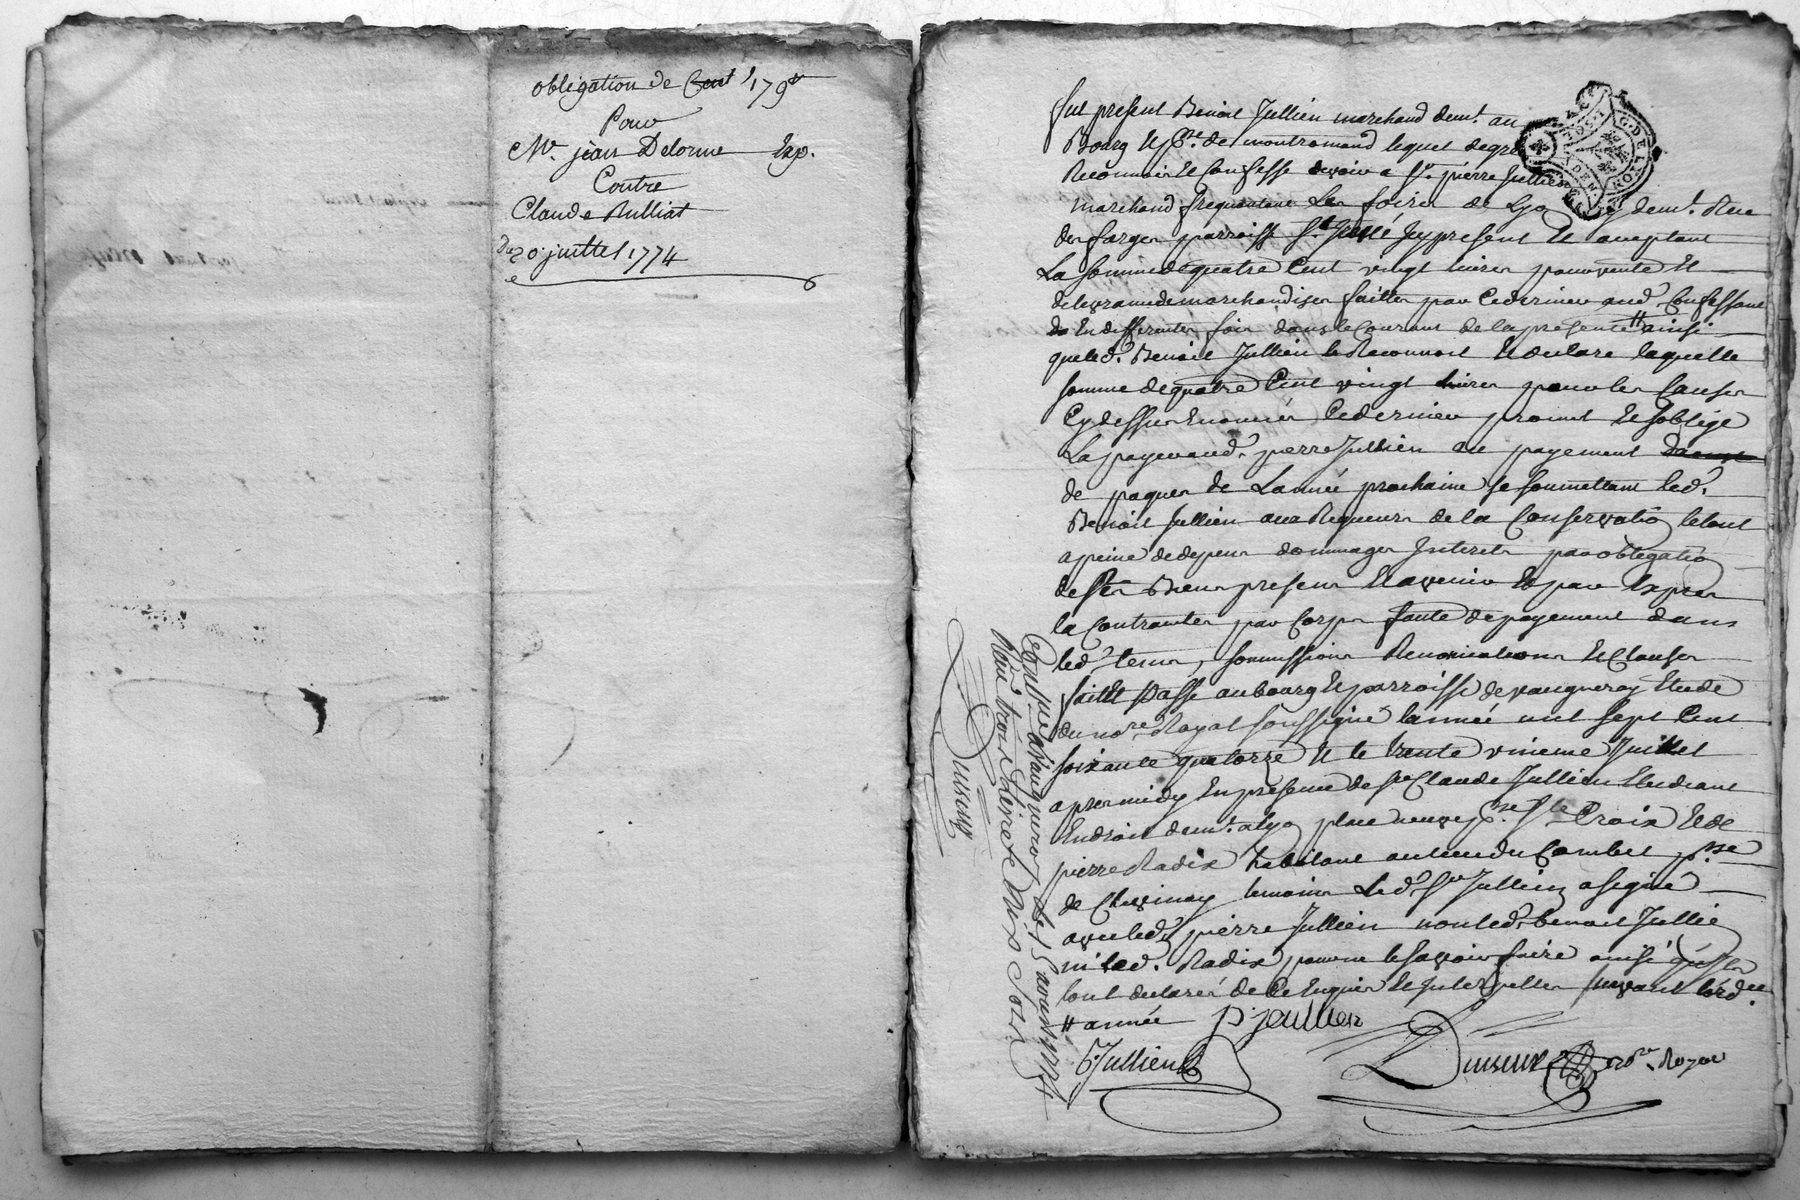 obligation de Cent 179#
Pour
Mr. jèan Delorme Exp.
Contre
Claude Rulliat
Du 20 juillet 1774
fut présent Benoit Jullien marchand demt. au
Bourg & psse. de montromand lequel de gré
Reconnoit & Confesse devoir a sr. pierre Jullien
marchand frequentant Les foires de Lyo y demt. Rue
des farges parroisse st. Jrené Jcy présent & acceptant
La somme de quatre Cent vingt livres pour vente et
delivrance de marchandises faittes par Ce dernier aud. Confessant
En differentes fois dans le Courant de la presente # ainsi
que led. Benoit Jullien le Reconnoit & declare laquelle
somme de quatre Cent vingt livres pour les Causes
Cy dessus Enoncées Ce dernier promet & s'oblige
La payer aud. pierre Jullien au payement
de paques de L'année prochaine se soumettant led.
Benoit Jullien aux Rigueurs de la Conservatio le tout
a peine de depens dommages Interets par obligatio
de ses Biens presens & avenir & par Exprès
la Contrainte par Corps faute de payement dans
led. terme, soumissions Renonciations & Clauses
faitte & Passé au bourg & parroisse de vaugneray Etude
du nore. Royal soussigné l'année mil sept Cent
soixante quatorze & le trente unieme Juillet
apres midy En présence de sr Claude Jullien Etudiant
En droit demt. a Lyo place neuve psse. ste. Croix & de
pierre Radix habitant au lieu du Combet psse
de Chevinay temoins Led. sr Jullien a signé
avec led. pierre Jullien non led. benoit Jullie
ni led. Radix pour ne le savoir faire ainsi qu'ils
l'ont declaré de Ce Enquis & Interpellés suivant l'ordce.
# année P. jeullien
C. Jullien Duseux nore. Royal
Con.lé a Vaugneray le 5 aoust 1774
Reçu trois livres dix sols
Duseux